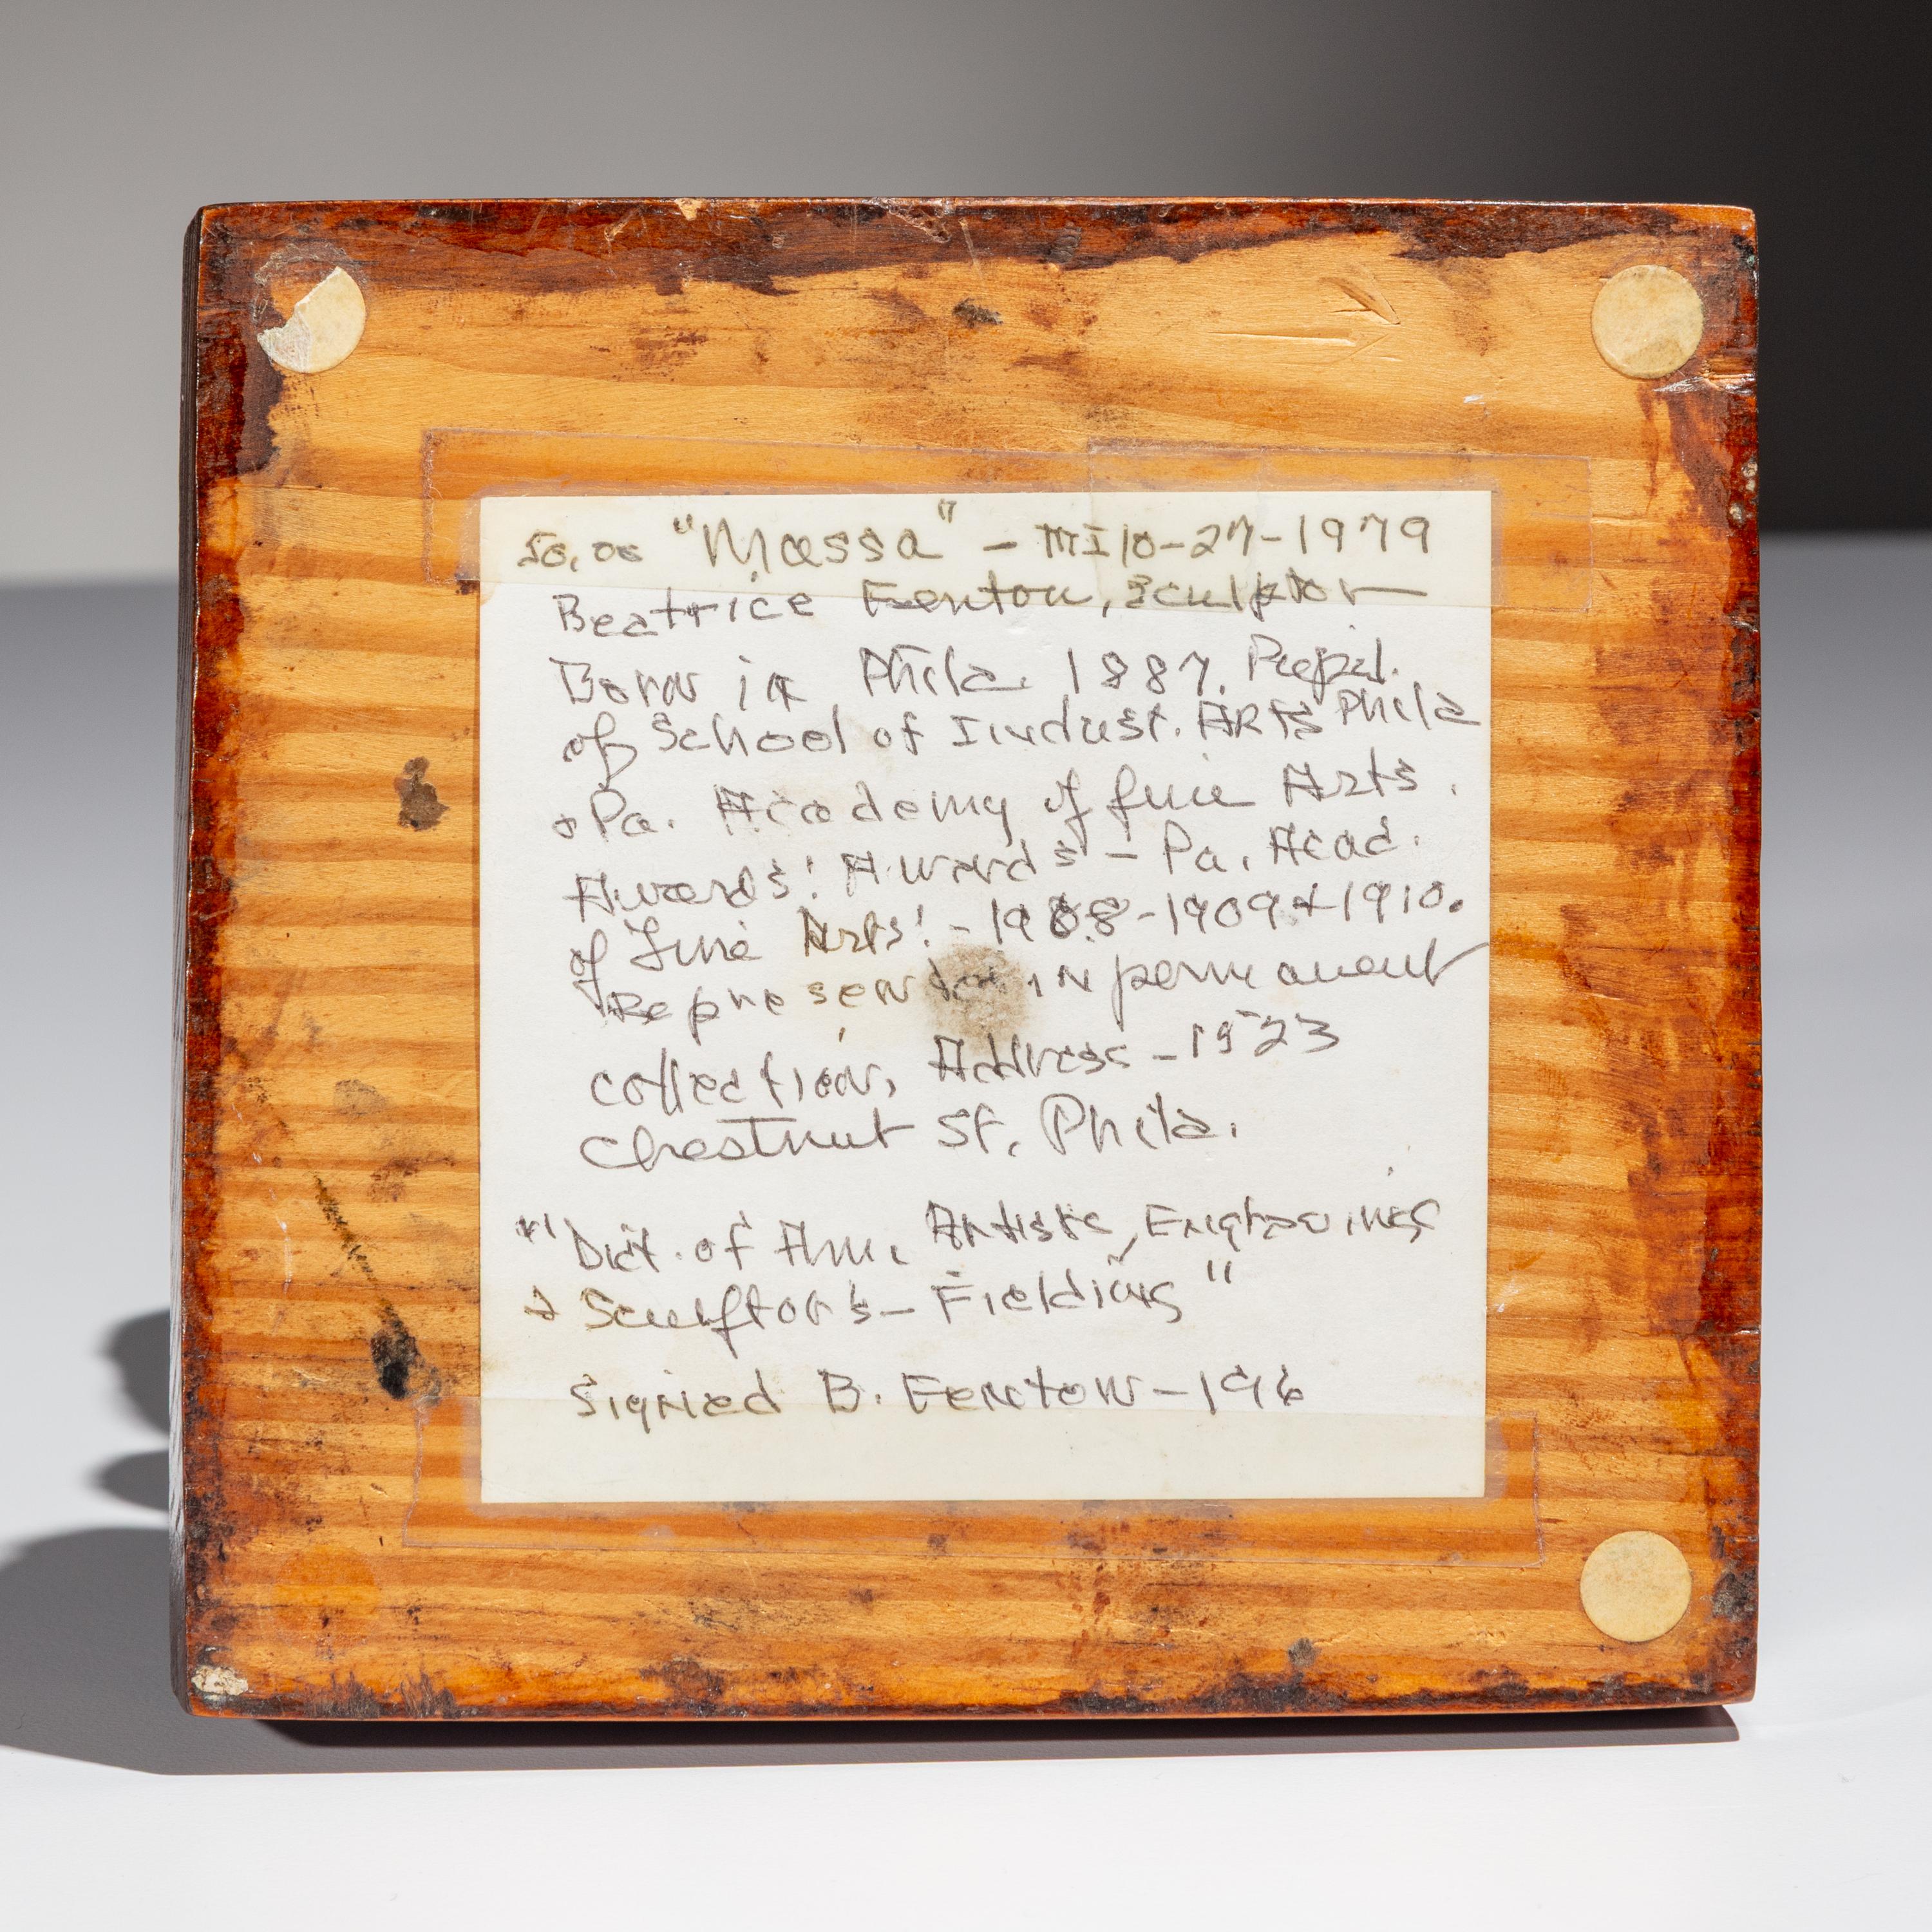 50,00 "Massa" - MI 10-27-1979
Beatrice Fenton, Sculptor
Born in Phila. 1887. Pupil.
of School of Indust. ARTS Phila
+ Pa. Academy of fine Arts.
Awards: Awards - Pa. Acad.
of Fine Arts: - 1908-1909 + 1910.
Represented in permanent
collection, Address - 1523
Chestnut St, Phila.
"Dict. of Am. Artists, Engravings
+ Sculptor's - Fielding"
Signed B. Fenton - 196